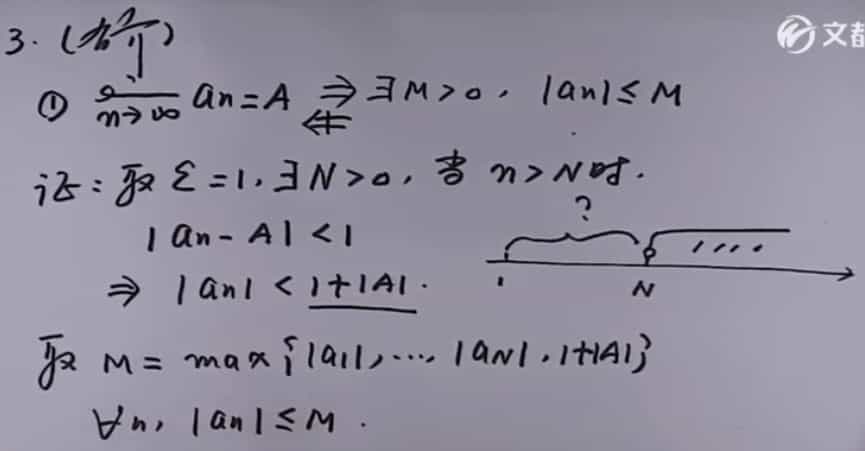 3. (有界)
文都
① lim n→∞ an = A ⇒ ∃M>0, |an| ≤ M
⇍
证: 取 ε=1, ∃N>0, 当 n>N时.
|an - A| < 1
?
⇒ |an| < 1+|A|.
1 N
取 M = max{|a1|, ..., |aN|, 1+|A|}
∀n, |an| ≤ M.